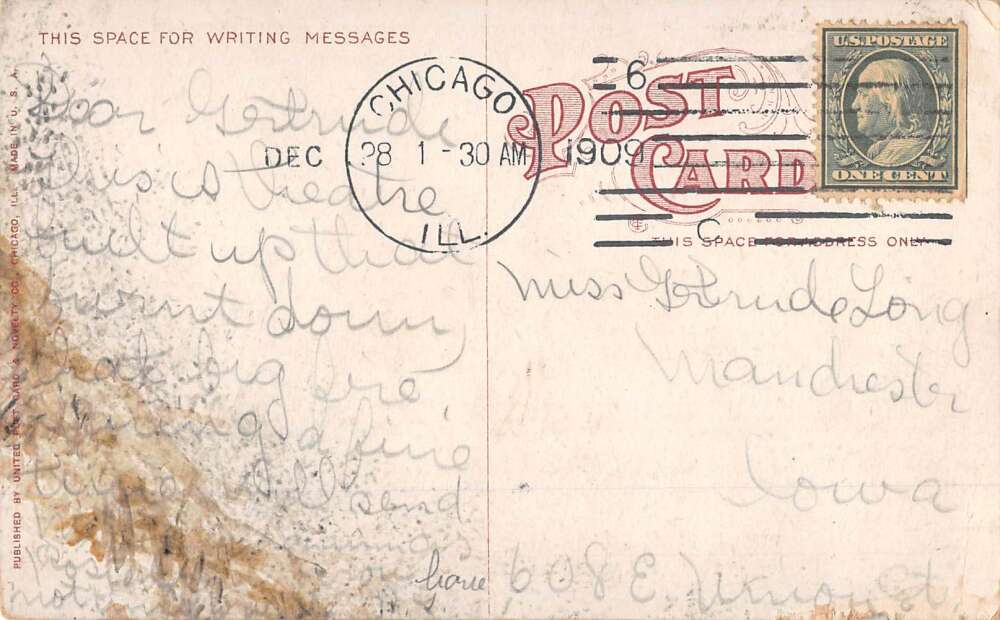 THIS SPACE FOR WRITING MESSAGES
Dear Gertrude
This is theatre
built up that
burnt down
that big fire
having a fine
time Will send
nothing
home
PUBLISHED BY UNITED POST CARD & NOVELTY CO. CHICAGO, ILL. MADE IN U. S. A.
CHICAGO
DEC 28 1-30 AM 1909
ILL.
6
C
POST
CARD
U.S. POSTAGE
ONE CENT
THIS SPACE FOR ADDRESS ONLY
Miss Gertrude Long
Manchester
Iowa
608 E. Union St